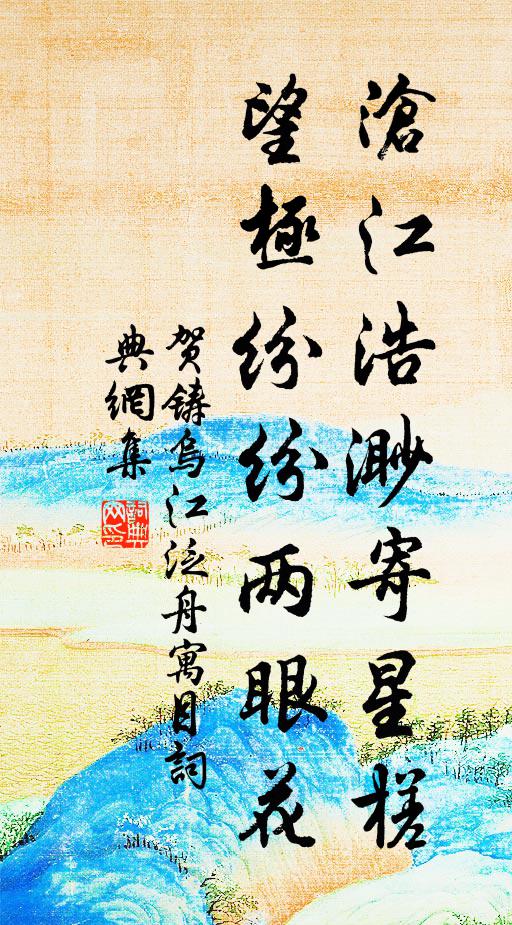 滄江浩渺寄星槎
望極紛紛两眼花
贺鑄烏江泛舟寓目詞
典網集
詞典
网印